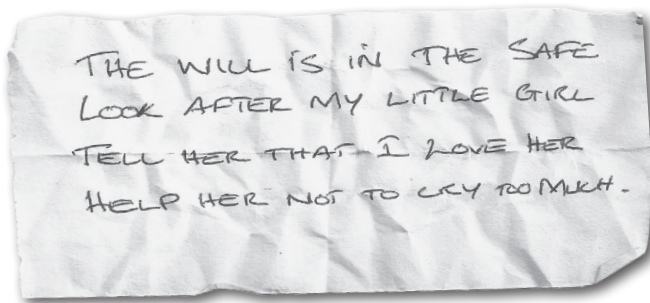 THE WILL IS IN THE SAFE
LOOK AFTER MY LITTLE GIRL
TELL HER THAT I LOVE HER
HELP HER NOT TO CRY TOO MUCH.